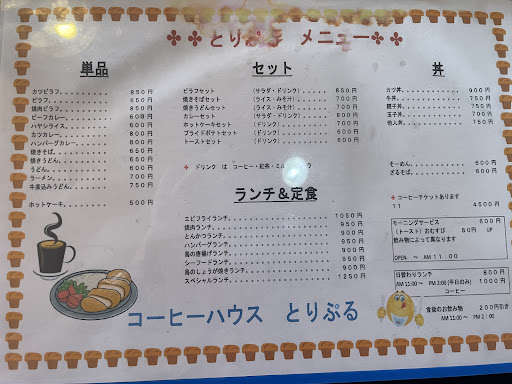 とりぷる メニュー
単品
カツピラフ. 850円
ピラフ. 650円
焼肉ピラフ. 850円
ビーフカレー. 800円
ハヤシライス. 600円
カツカレー. 800円
ハンバーグカレー. 800円
焼きそば. 650円
焼きうどん. 650円
うどん. 600円
ラーメン. 700円
牛煮込みうどん. 750円
ホットケーキ. 500円
セット
ピラフセット (サラダ・ドリンク) 850円
焼きそばセット (ライス・みそ汁) 700円
焼きうどんセット (ライス・みそ汁) 700円
カレーセット (サラダ・ドリンク) 800円
ホットケーキセット (ドリンク) 700円
フライドポテトセット (ドリンク) 600円
トーストセット (ドリンク) 600円
ドリンク は コーヒー・紅茶・ミル
ランチ&定食
エビフライランチ. 1050円
焼肉ランチ. 950円
とんかつランチ. 950円
ハンバーグランチ. 950円
鳥の唐揚げ 900円
シーフードランチ. 950円
鳥のしょうが焼きランチ. 900円
スペシャルランチ. 1250円
丼
カツ丼. 900円
牛丼. 750円
親子丼. 750円
玉子丼. 700円
他人丼. 750円
そーめん. 600円
ざるそば. 600円
コーヒーチケットあります
11 4500円
モーニングサービス 600円
(トースト) おむすび 80円 UP
飲み物によって異なります
OPEN ～ AM 11:00
日替わりランチ 800円
AM 11:00 ～ PM 2:00 (平日のみ) 1000円
コーヒー
食後のお飲み物 200円引き
AM 11:00 ～ PM 2:00
コーヒーハウス とりぷる